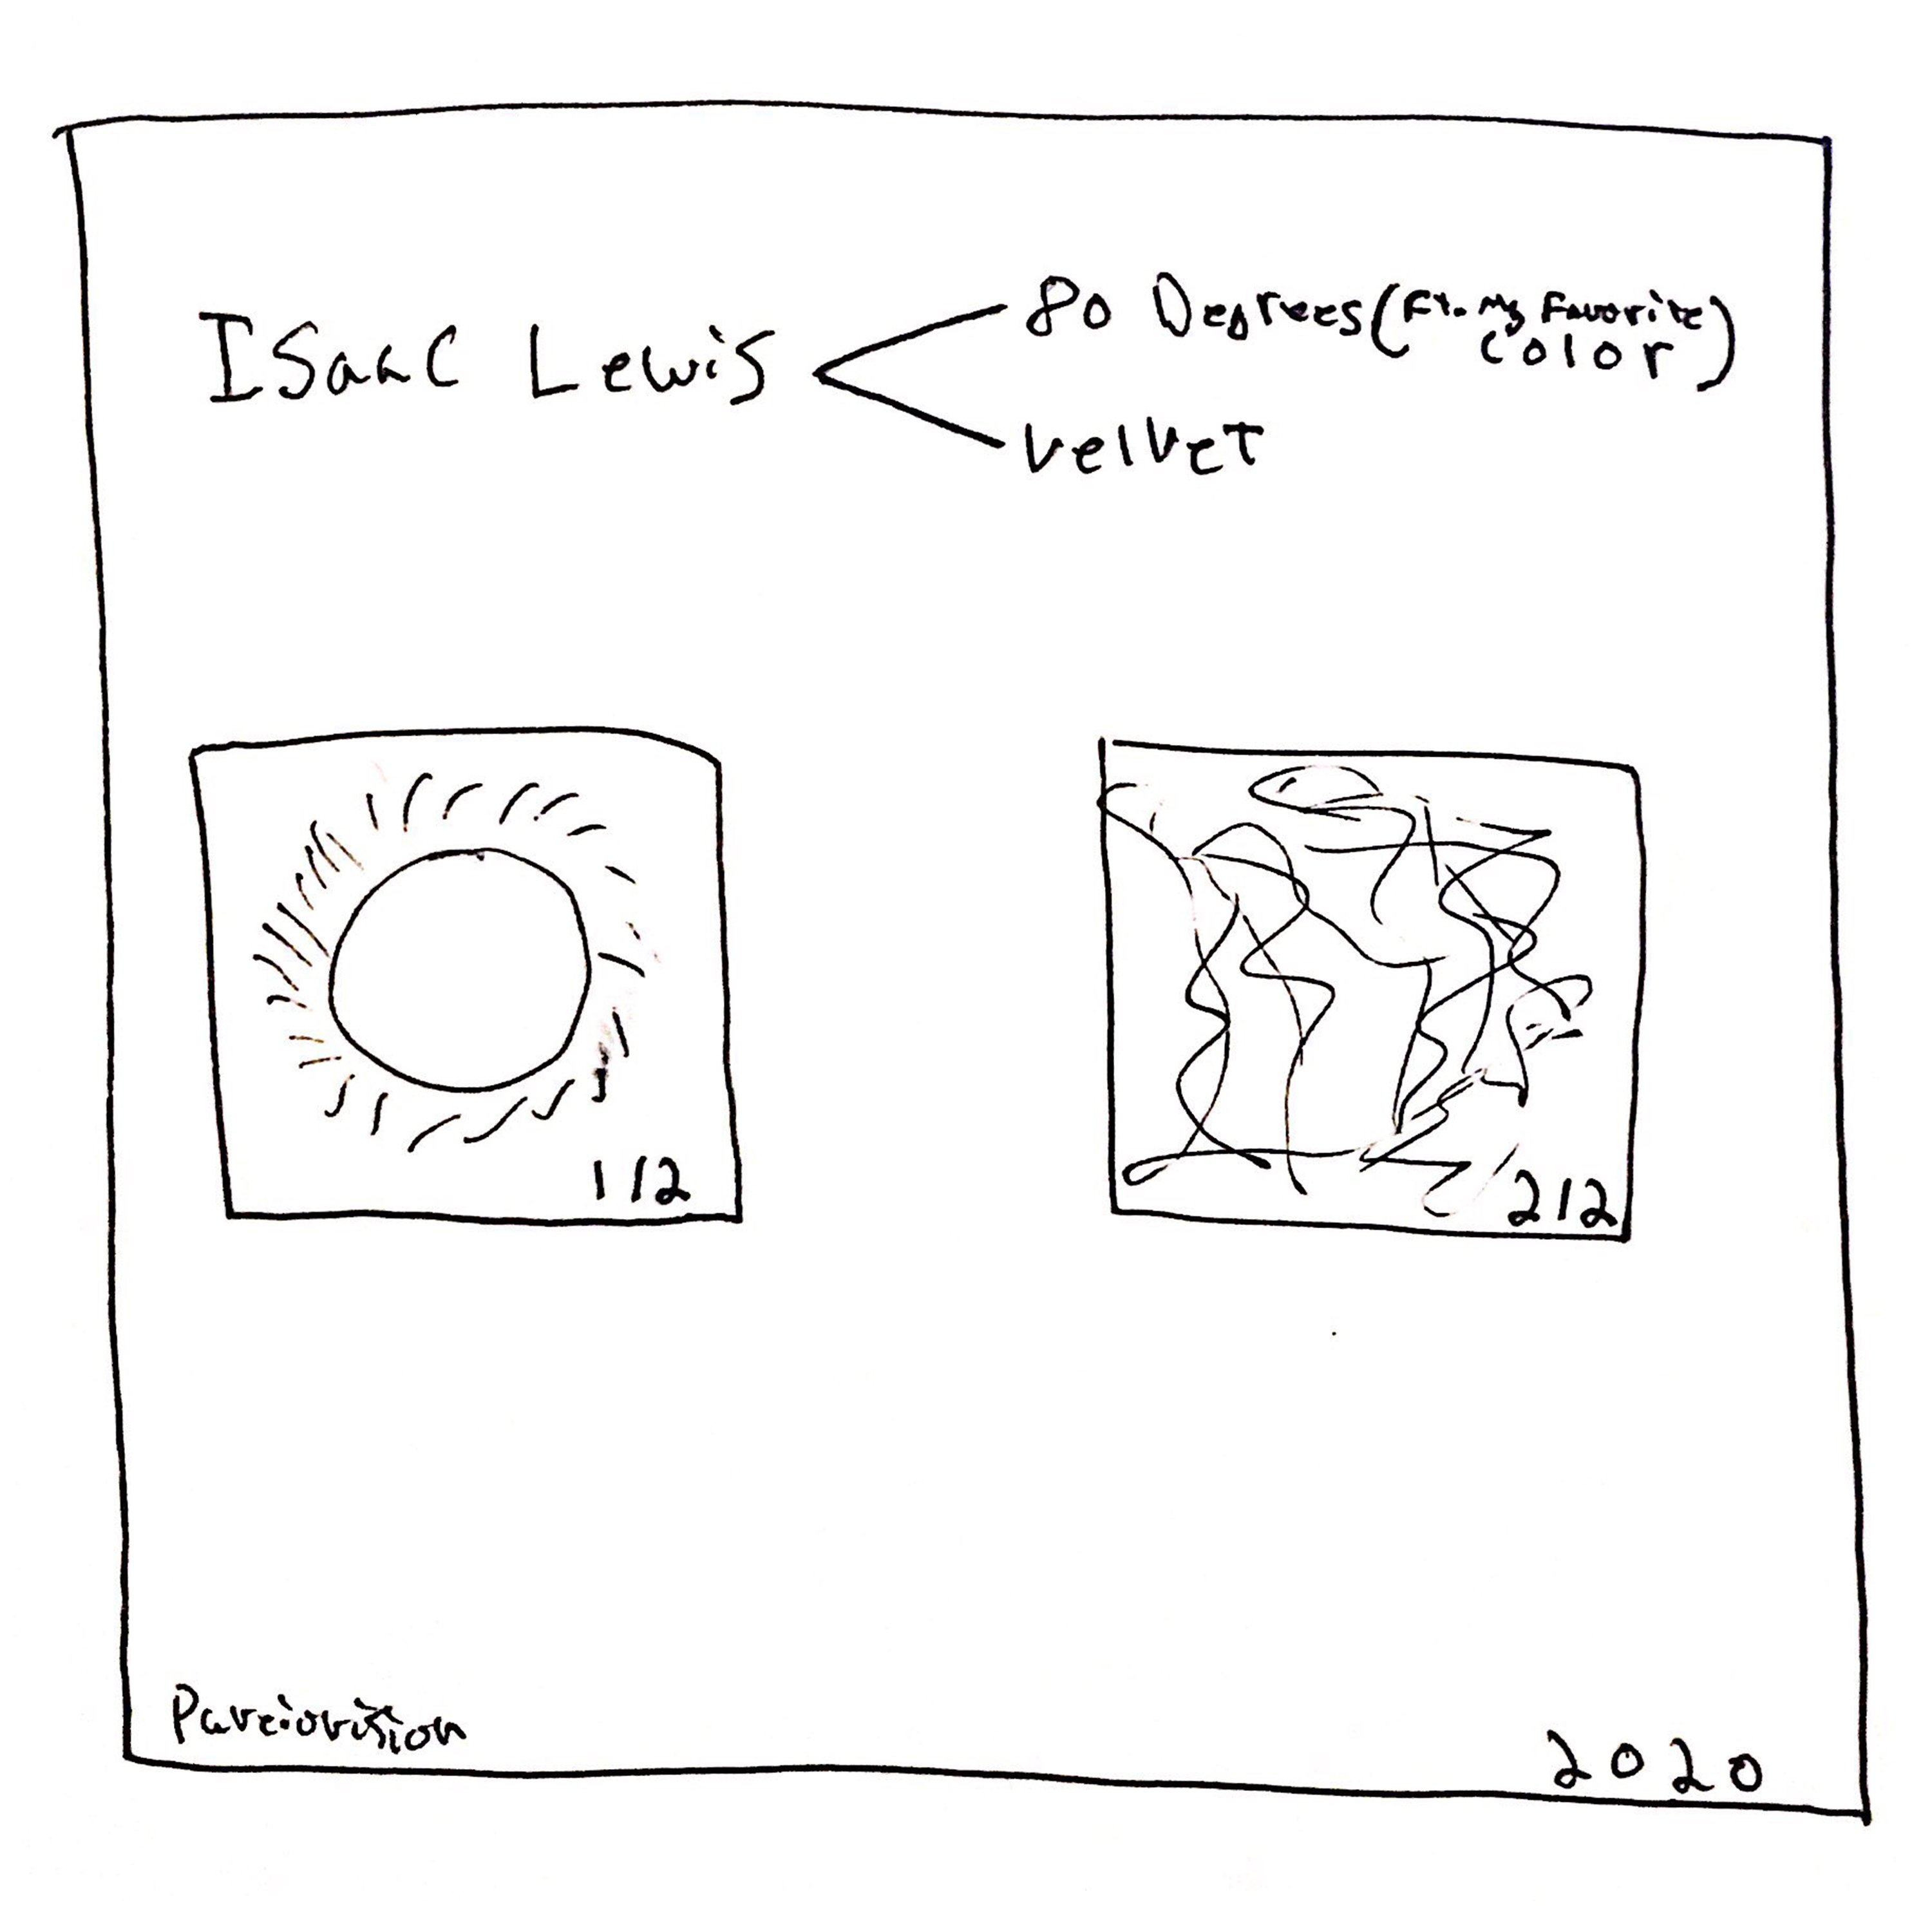 Isaac Lewis
80 Degrees (Ft. My Favorite
Color)
Velvet
1/2
2/2
2020